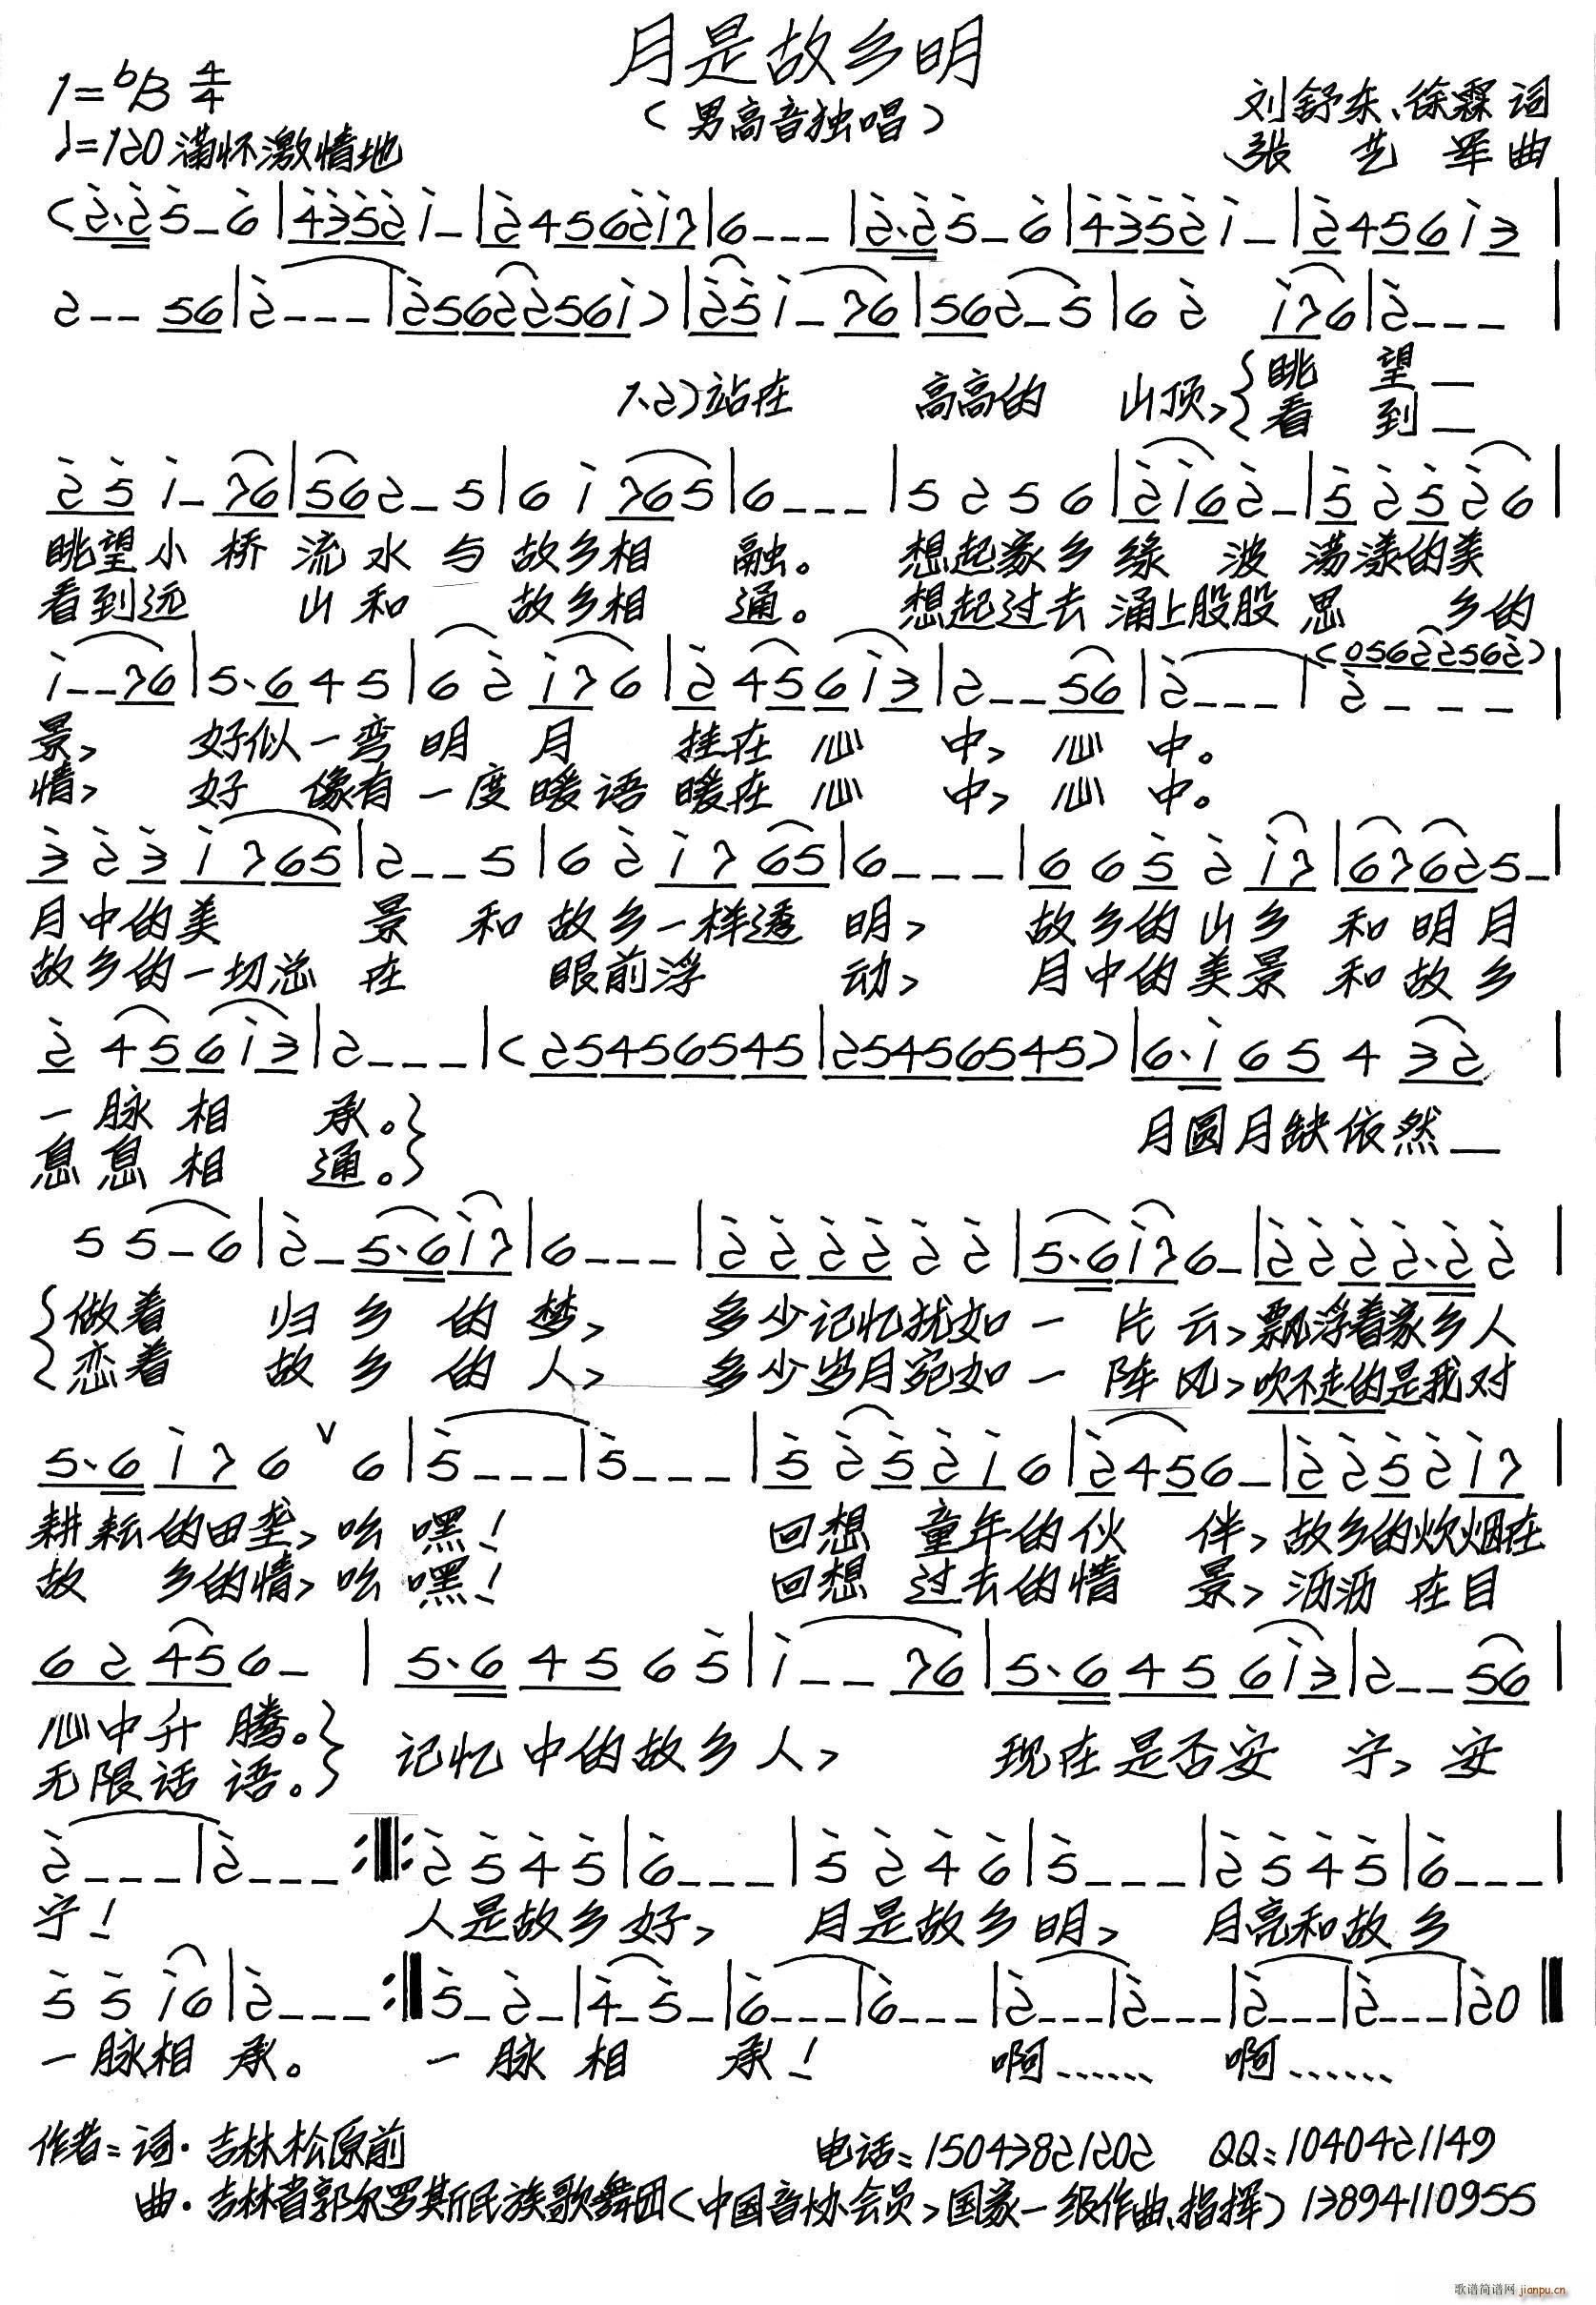 月是故乡明
(男高音独唱)
1=ᵇB 4/4
♩=120 满怀激情地
刘舒东、徐霖词
张艺军曲
(2̇·2̇5-6̇|4̇3̇5̇2̇1̇-|2̇45621̇7|6---|2̇·2̇5̇-6|4̇3̇5̇2̇1̇-|2̇4561̇3|
2--56|2̇---|2̇5622561̇)|2̇5̇1̇-76|562-5|62̇1̇76|2̇---|
1.2)站在 高高的 山顶,{眺望—
看到—
2̇5̇1̇-76|562-5|61̇765|6---|5256|2̇1̇62̇-|5̇2̇5̇2̇6|
眺望小桥流水与故乡相融。想起家乡缘波荡漾的美
看到远山和故乡相通。想起过去涌上股股思乡的
(05622562̇)
1̇--76|5·645|62̇1̇76|2̇4561̇3|2--56|2̇---|2̇---|
景,好似一弯明月挂在心中,心中。
情,好像有一度暖语暖在心中,心中。
3̇2̇3̇1̇765|2--5|62̇1̇765|6---|665̇2̇1̇7|67625-|
月中的美景和故乡一样透明,故乡的山乡和明月
故乡的一切总在眼前浮动,月中的美景和故乡
2̇4561̇3|2---|(25456545|25456545)|6·1̇65432|
一脉相承。}
息息相通。}
月圆月缺依然—
55-6|2̇-5·61̇7|6---|2̇2̇2̇2̇2̇2̇|5·61̇76-|2̇2̇2̇2̇·2̇2̇|
{做着归乡的梦,多少记忆犹如一片云,飘浮着家乡人
恋着故乡的人,多少岁月宛如一阵风,吹不走的是我对
5·61̇76∨6|5̇---|5̇---|5̇2̇5̇2̇1̇6|2̇456-|2̇2̇5̇2̇1̇7|
耕耘的田垄,吆嘿!回想童年的伙伴,故乡的炊烟在
故乡的情,吆嘿!回想过去的情景,沥沥在目
62456-|5·64565̇|1̇--76|5·64561̇3|2--56|
心中升腾。}
无限话语。}
记忆中的故乡人,现在是否安宁,安
2̇---|2̇---:‖:2̇5̇4̇5̇|6̇---|5̇2̇4̇6̇|5̇---|2̇5̇4̇5̇|6̇---|
宁!人是故乡好,月是故乡明,月亮和故乡
5̇5̇1̇6|2̇---:‖5̇-2̇-|4̇-5̇-|6̇---|6̇---|2̇---|2̇---|2̇---|2̇---|2̇0‖
一脉相承。一脉相承!啊……啊……
作者:词·吉林松原前 电话:15043821202 QQ:1040421149
曲·吉林省郭尔罗斯民族歌舞团(中国音协会员,国家一级作曲、指挥)13894110955
歌谱简谱网 jianpu.cn